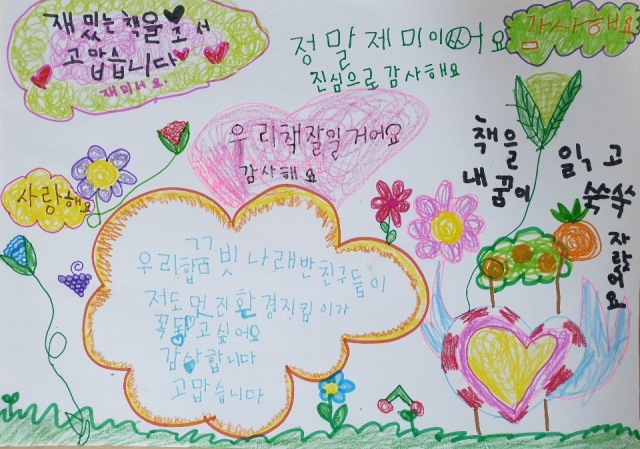 재밌는책을 조서
고맙습니다
재미써요
정말 제미이있어요
진심으로 감사해요
감사해요
우리책잘읽거어요
감사해요
사랑해요
책을 읽고
내 꿈이 쑥쑥
자랐어요
빛나래반친구들이
저도 멋진환경지킴이가
되고싶어요
감사합니다
고맙습니다